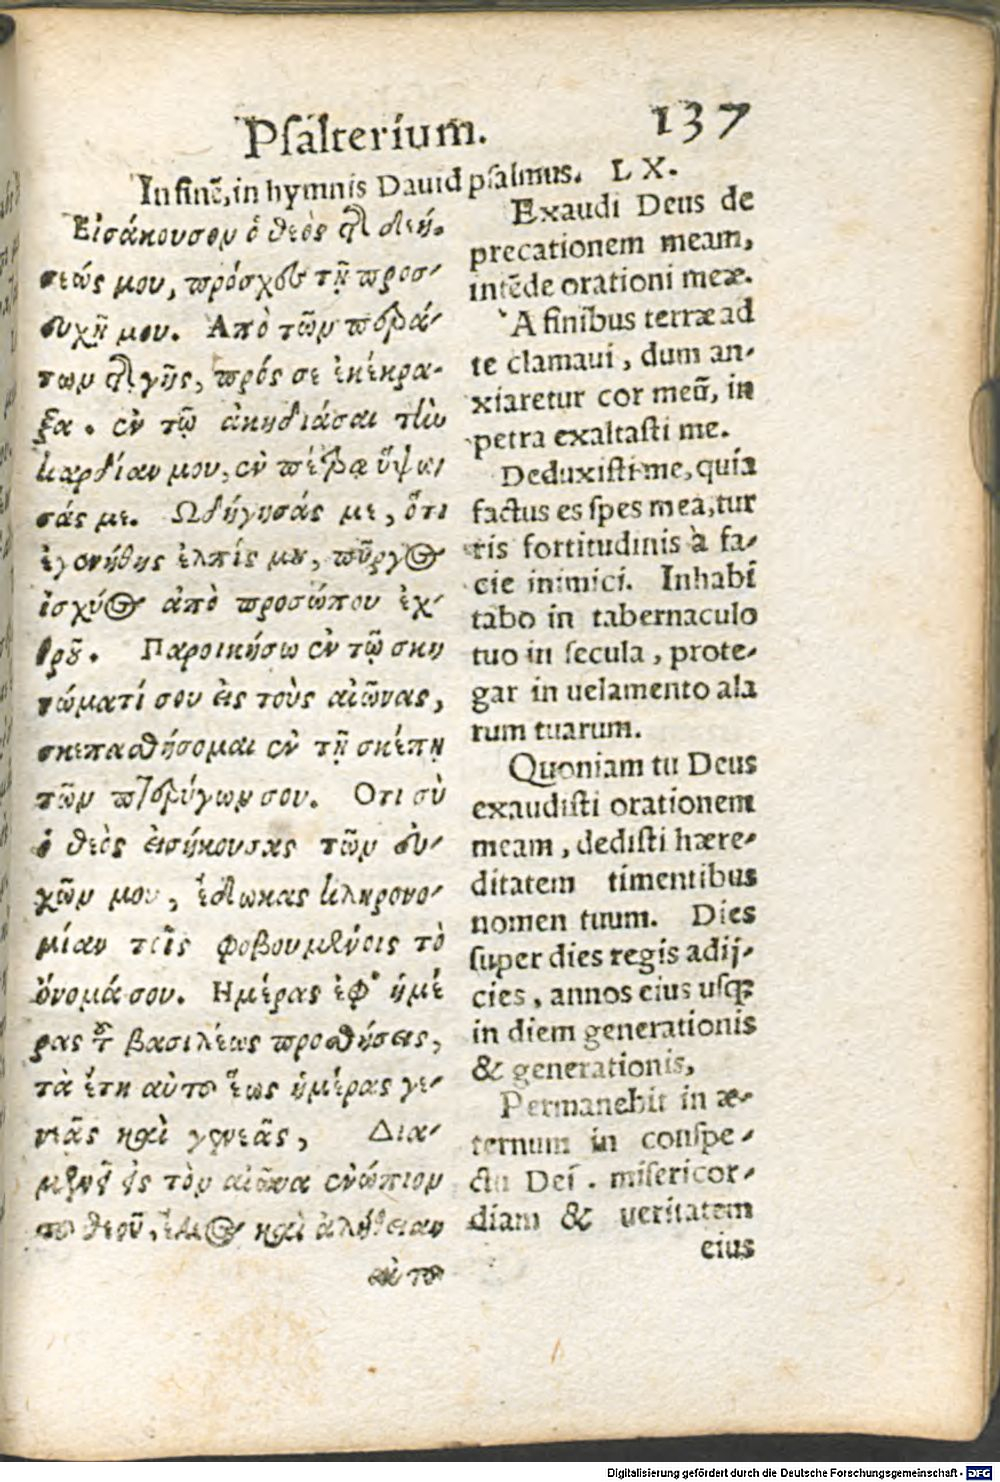 Psalterium. 137
In finē, in hymnis Dauid psalmus. LX.
Εἰσάκουσον ὁ θεὸς τῆς δεή-
σεώς μου, πρόσχες τῇ προσ-
ευχῇ μου. Απὸ τῶν περά-
των τῆς γῆς, πρός σε ἐκέκρα-
ξα. ἐν τῷ ἀκηδιάσαι τὴν
καρδίαν μου, ἐν πέτρᾳ ὕψω
σάς με. Ωδήγησάς με, ὅτι
ἐγενήθης ἐλπίς μου, πύργος
ἰσχύος ἀπὸ προσώπου ἐχ-
θροῦ. Παροικήσω ἐν τῷ σκη
νώματί σου εἰς τοὺς αἰῶνας,
σκεπασθήσομαι ἐν τῇ σκέπῃ
τῶν πτερύγων σου. Οτι σὺ
ὁ θεὸς εἰσήκουσας τῶν εὐ-
χῶν μου, ἔδωκας κληρονο-
μίαν τοῖς φοβουμένοις τὸ
ὄνομά σου. Ημέρας ἐφ' ἡμέ
ρας τοῦ βασιλέως προσθήσεις,
τὰ ἔτη αὐτοῦ ἕως ἡμέρας γε-
νεᾶς καὶ γενεᾶς, Δια-
μενεῖ εἰς τὸν αἰῶνα ἐνώπιον
τοῦ θεοῦ, ἔλεος καὶ ἀλήθειαν
αὐτοῦ
Exaudi Deus de
precationem meam,
intēde orationi meæ.
A finibus terræ ad
te clamaui, dum an-
xiaretur cor meū, in
petra exaltasti me.
Deduxisti me, quia
factus es spes mea, tur
ris fortitudinis à fa-
cie inimici. Inhabi
tabo in tabernaculo
tuo in secula, prote-
gar in uelamento ala
rum tuarum.
Quoniam tu Deus
exaudisti orationem
meam, dedisti hære-
ditatem timentibus
nomen tuum. Dies
super dies regis adij-
cies, annos eius usq;
in diem generationis
& generationis,
Permanebit in æ-
ternum in conspe-
ctu Dei. misericor-
diam & ueritatem
eius
Digitalisierung gefördert durch die Deutsche Forschungsgemeinschaft - DFG